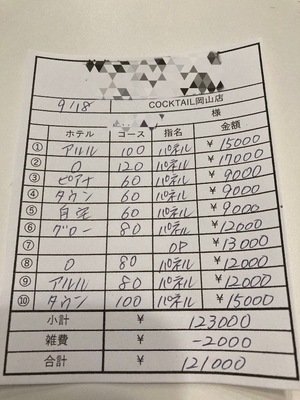 9/18 COCKTAIL岡山店
様
ホテル コース 指名 金額
① アルル 100 パネル ¥15000
② O 120 パネル ¥17000
③ ピアナ 60 パネル ¥9000
④ タウン 60 パネル ¥9000
⑤ 自宅 60 パネル ¥9000
⑥ グロー 80 パネル ¥12000
⑦ OP ¥13000
⑧ O 80 パネル ¥12000
⑨ アルル 80 パネル ¥12000
⑩ タウン 100 パネル ¥15000
小計 ¥ 123000
雑費 ¥ -2000
合計 ¥ 121000